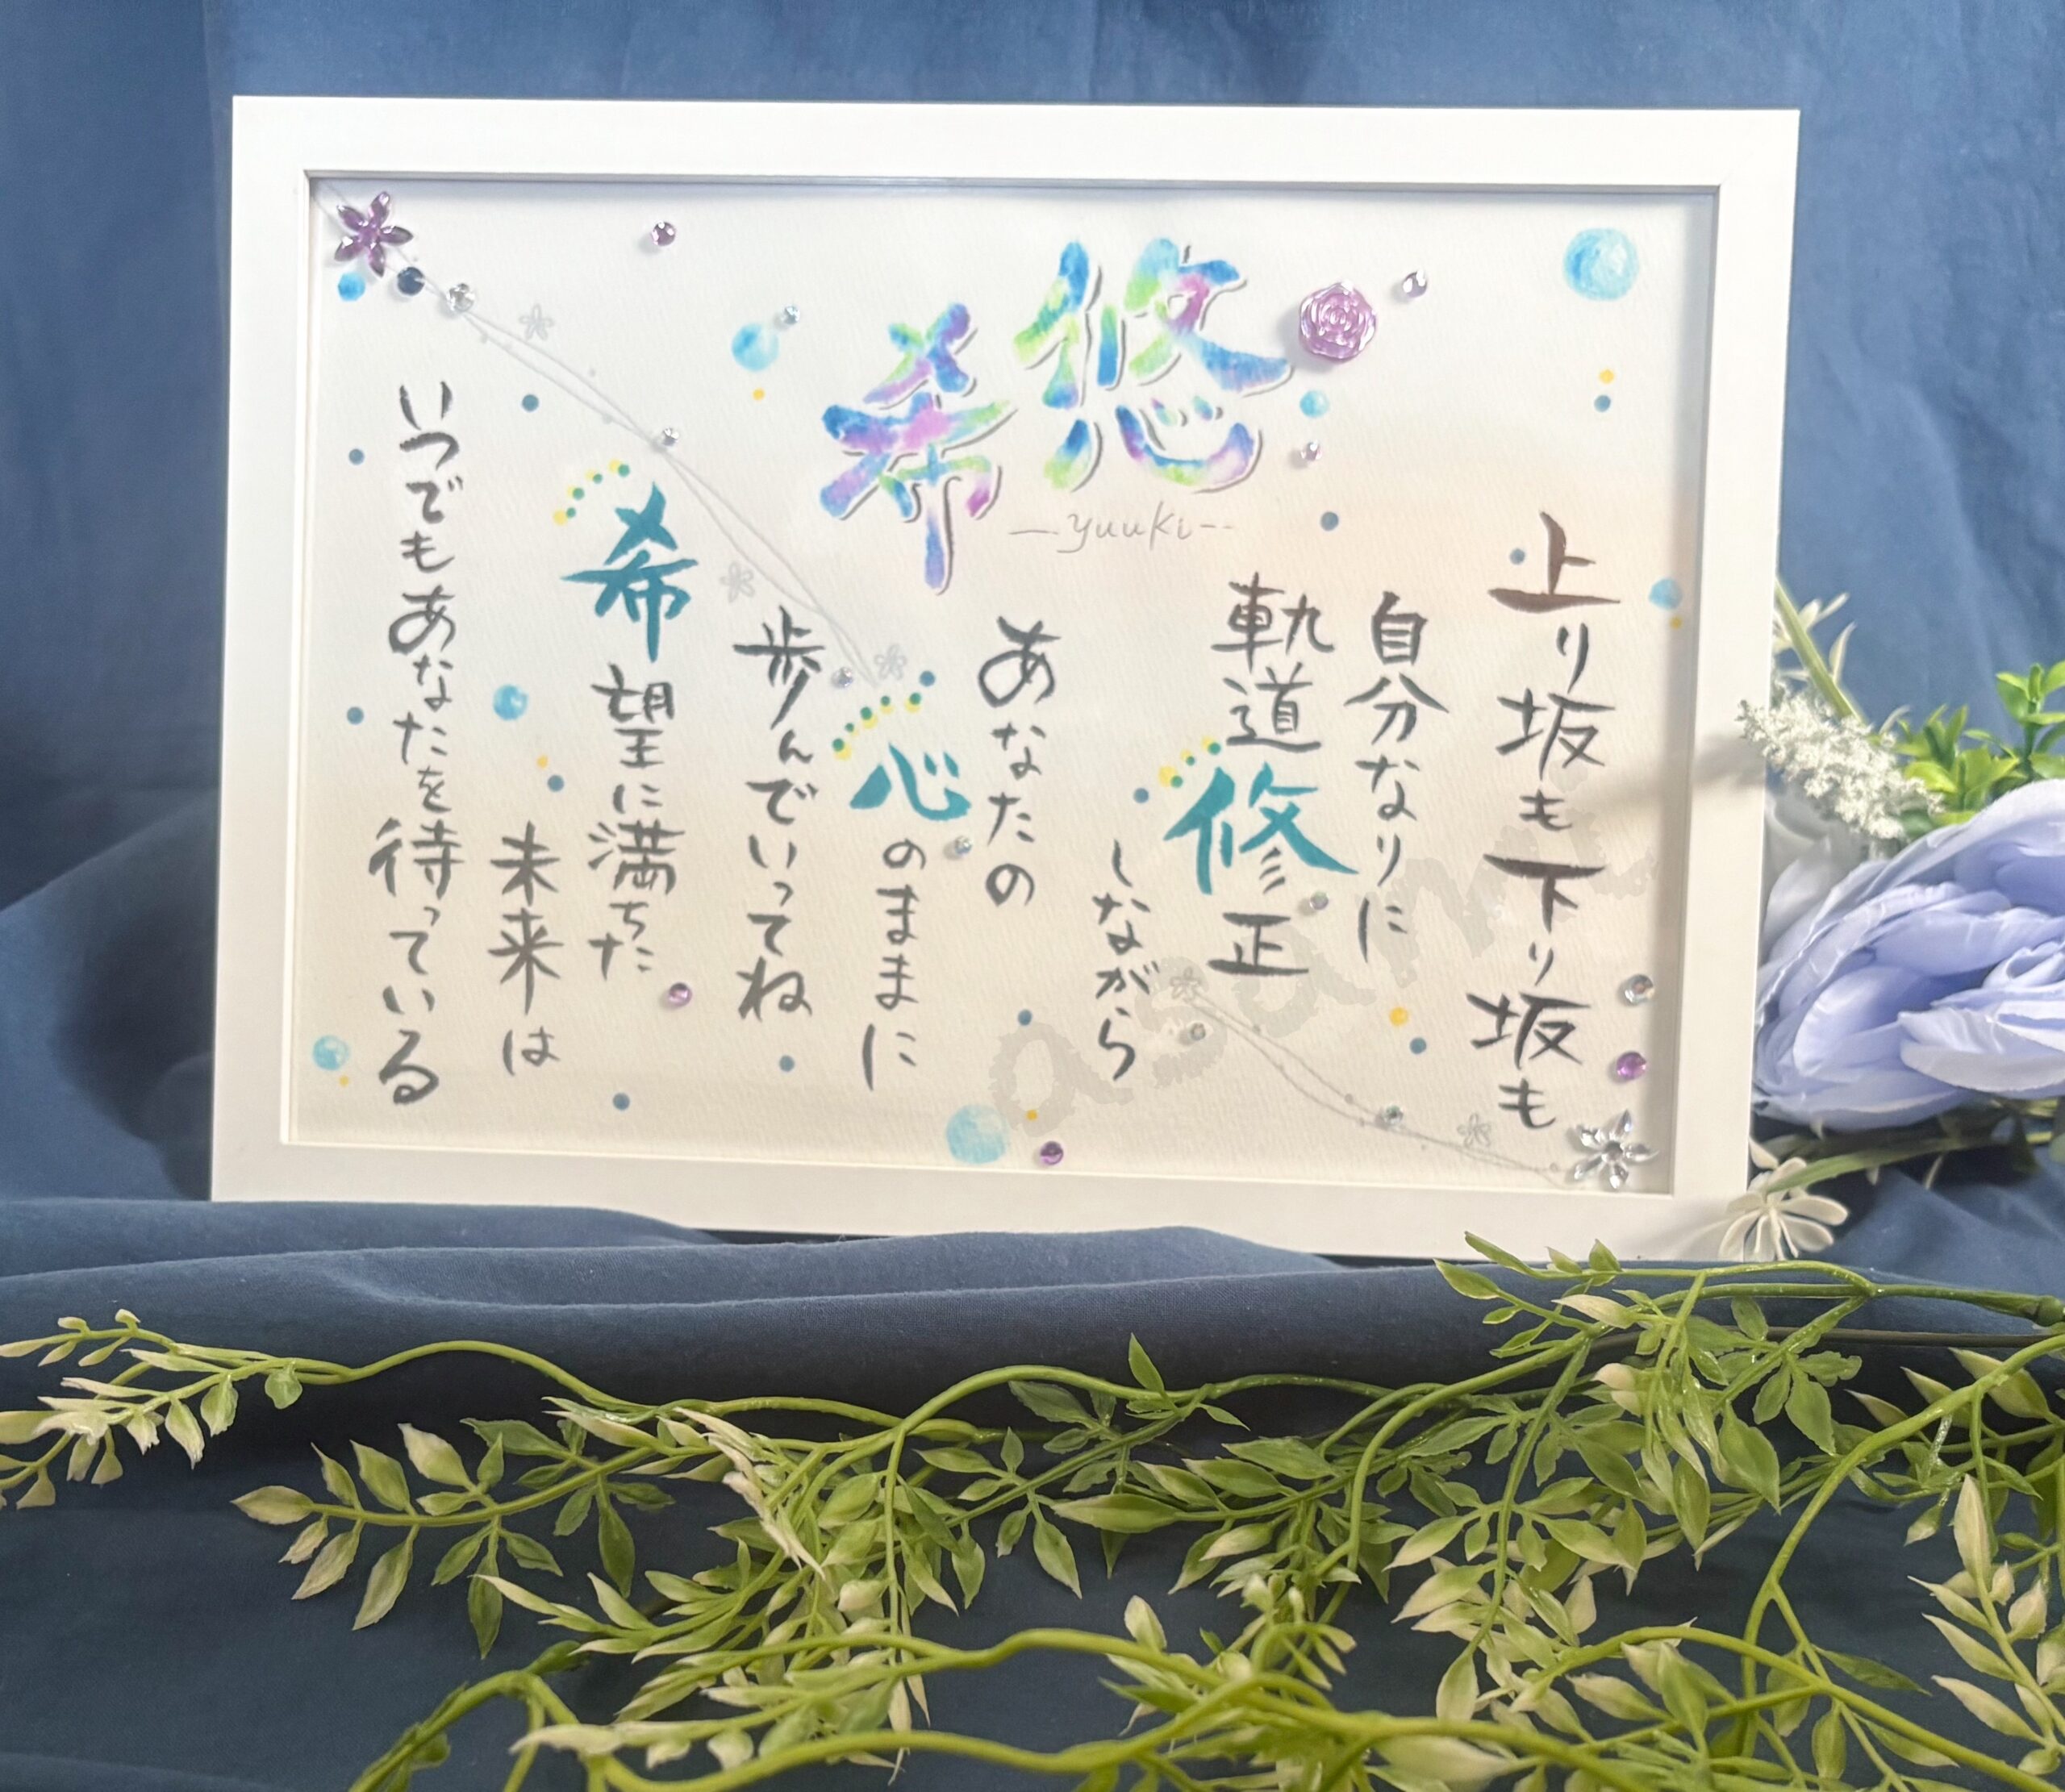 悠希
—yuuki--
上り坂も下り坂も
自分なりに
軌道修正
しながら
あなたの
心のままに
歩んでいってね
希望に満ちた
未来は
いつでもあなたを待っている
asami